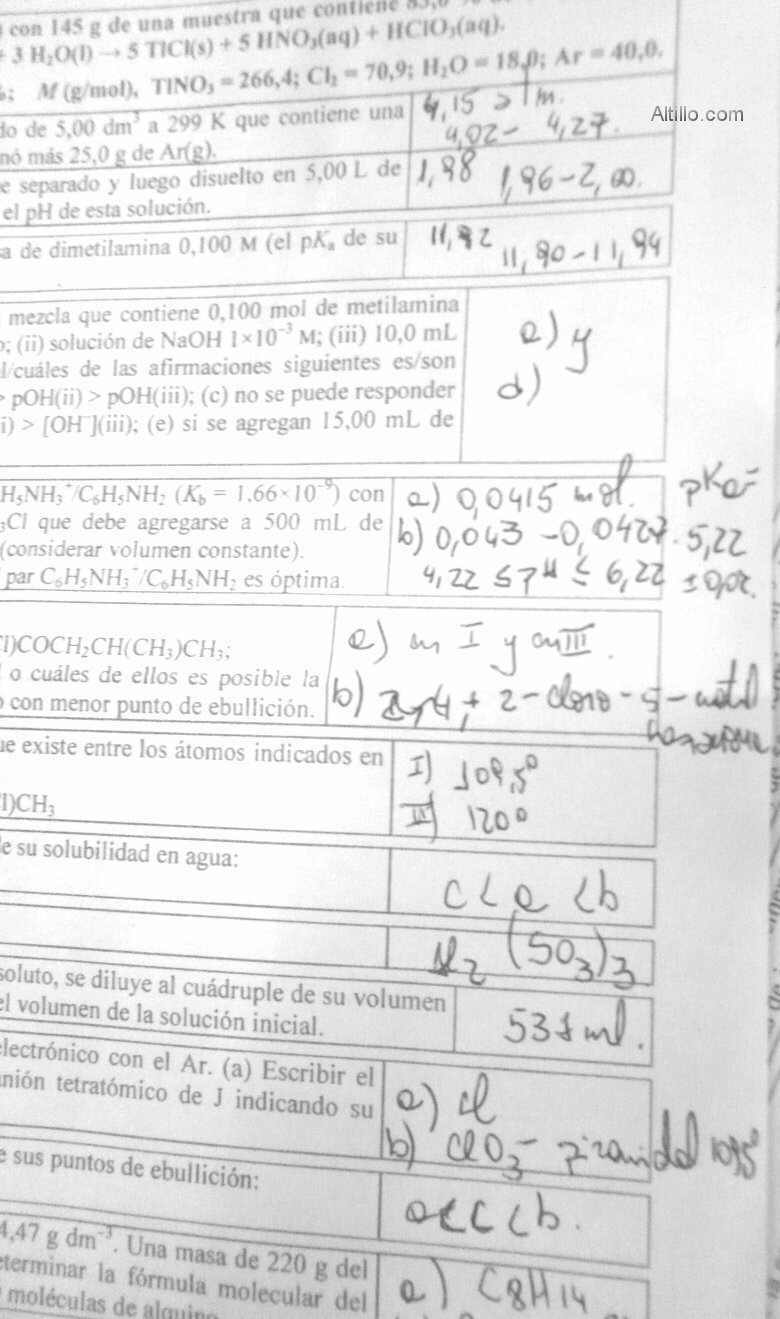 con 145 g de una muestra que contiene 85,0
+ 3 H₂O(l) → 5 TlCl(s) + 5 HNO₃(aq) + HClO₃(aq).
M (g/mol), TlNO₃ = 266,4; Cl₂ = 70,9; H₂O = 18,0; Ar = 40,0.
Altillo.com
do de 5,00 dm³ a 299 K que contiene una
nó más 25,0 g de Ar(g).
4,15 atm.
4,02 - 4,27.
e separado y luego disuelto en 5,00 L de
el pH de esta solución.
1,98 1,96-2,00.
a de dimetilamina 0,100 M (el pKₐ de su
11,92 11,90-11,94
mezcla que contiene 0,100 mol de metilamina
o; (ii) solución de NaOH 1×10⁻³ M; (iii) 10,0 mL
l/cuáles de las afirmaciones siguientes es/son
> pOH(ii) > pOH(iii); (c) no se puede responder
i) > [OH⁻](iii); (e) si se agregan 15,00 mL de
a) y
d)
H₅NH₃⁺/C₆H₅NH₂ (K_b = 1.66×10⁻⁹) con
₃Cl que debe agregarse a 500 mL de
(considerar volumen constante).
par C₆H₅NH₃⁺/C₆H₅NH₂ es óptima.
a) 0,0415 mol.
b) 0,043 - 0,0427.
4,22 ≤ pH ≤ 6,22
pKa=
5,22
± 0,02.
l)COCH₂CH(CH₃)CH₃;
o cuáles de ellos es posible la
o con menor punto de ebullición.
a) en I y en III.
b) 2-cloro-5-metil
ue existe entre los átomos indicados en
l)CH₃
I) 109,5°
II) 120°
e su solubilidad en agua:
c < a < b
Al₂(SO₃)₃
soluto, se diluye al cuádruple de su volumen
el volumen de la solución inicial.
531 ml.
electrónico con el Ar. (a) Escribir el
anión tetratómico de J indicando su
a) Cl
b) ClO₃⁻ piramidal 109,5°
e sus puntos de ebullición:
a < c < b.
4,47 g dm⁻³. Una masa de 220 g del
eterminar la fórmula molecular del
moléculas de alquino
a) C8H14